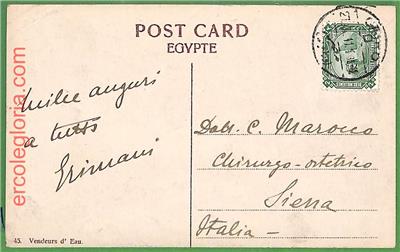 POST CARD
EGYPTE
Mille auguri
a tutti
Grimani
Dott. C. Marocco
Chirurgo-ostetrico
Siena
Italia -
45. Vendeurs d' Eau.
ercolegloria.com